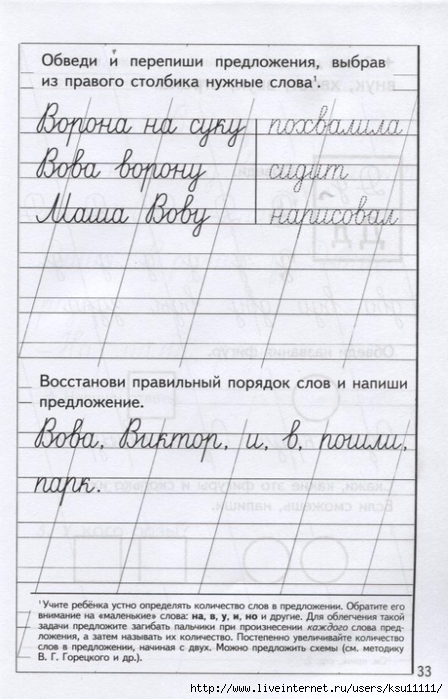 Обведи и перепиши предложения, выбрав
из правого столбика нужные слова¹.
Ворона на суку похвалила
Вова ворону сидит
Маша Вову нарисовал
Восстанови правильный порядок слов и напиши
предложение.
Вова, Виктор, и, в, пошли,
парк.
¹Учите ребёнка устно определять количество слов в предложении. Обратите его
внимание на «маленькие» слова: на, в, у, и, но и другие. Для облегчения такой
задачи предложите загибать пальчики при произнесении каждого слова пред-
ложения, а затем называть их количество. Постепенно увеличивайте количество
слов в предложении, начиная с двух. Можно предложить схемы (см. методику
В. Г. Горецкого и др.).
33
http://www.liveinternet.ru/users/ksu11111/